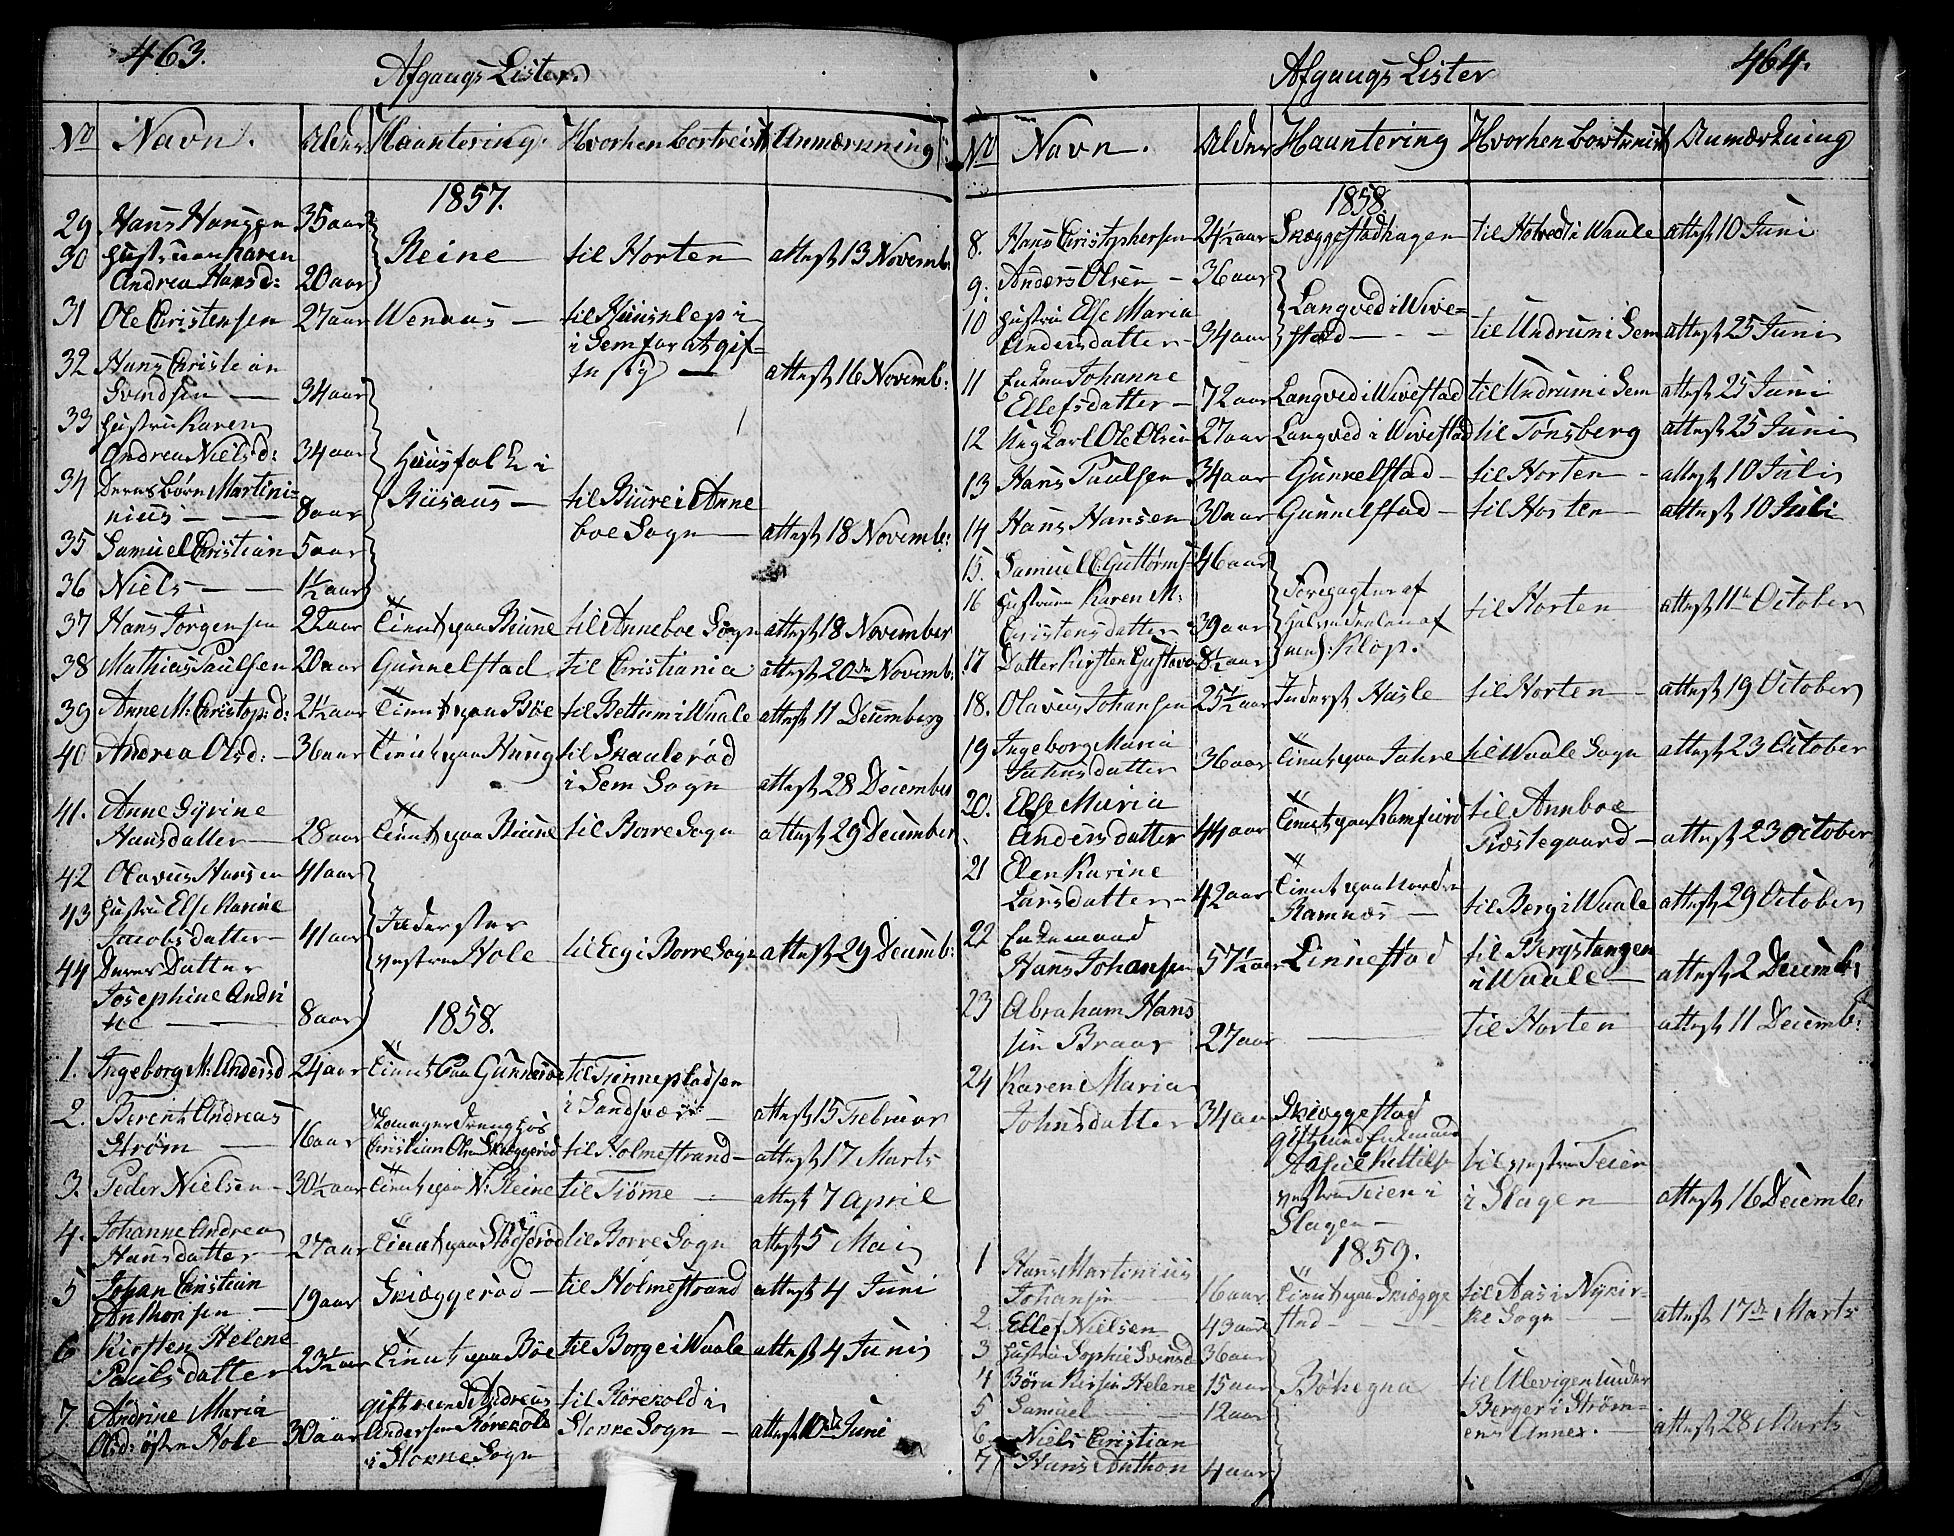 463.
Afgangs Lister
No Navn. Alder Haantering. Hvorhen bortreist Anmærkning
1857.
29 Hans Hansen 35 aar
30 Hustruen Karen
Andrea Hansd: 20 aar Reine til Horten attest 13 Novemb:
31 Ole Christensen 27 aar Wenaas til
i Sem for at gif-
te sig
32 Hans Christian
Svendsen 34 aar attest 16 Novemb:
33 Hustru Karen
Andrea Nielsd: 34 aar Huusfolk i
34 Deres børn Martini-
nius 8 aar til i Anne
boe Sogn attest 18 Novemb:
35 Samuel Christian 5 aar
36 Niels 1½ aar
37 Hans Jørgensen 22 aar Tienst paa til Anneboe Sogn attest 18 November
38 Mathias Paulsen 20 aar Gunnelstad til Christiania attest 20de Novemb:
39 Anne M: Christop:d: 21½ aar Tienst paa Bøe til Bettum i Waale attest 11 Decemberg
40 Andrea Olsd: 36 aar Tienst paa Haug til Skaulerød
i Sem Sogn attest 28 December
41. Anne Gyrine
Hansdatter 28 aar Tienst paa til Borre Sogn attest 29 December
42 Olavus Hansen 41 aar
43 Hustru Else Karine
Jacobsdatter 41 aar Inderster
vestre Hole til Eeg i Borre Sogn attest 29 Decemb:
44 Deres Datter
Josephine Andri
ne 8 aar
1858.
1. Ingeborg M: Andersd 24 aar Tienst paa Gunnerød til
i Sandsvær attest 15 Februar
2. Berent Andreas
Strøm 16 aar Skomager Dreng hos
Christian Olsen Skæggerød til Holmestrand attest 17 Marts
3. Peder Nielsen 30½ aar Tienst paa N: Reine til Tiøme attest 7 April
4. Johanne Andrea
Hansdatter 27 aar Tienst paa til Borre Sogn attest 5 Mai
5 Johan Christian
Anthonsen 19 aar Skiæggerød til Holmestrand attest 4 Juni
6 Kirsten Helene
Paulsdatter 23½ aar Tienst paa Bøe til Borge i Waale attest 4 Juni
7. Andrine Maria
Olsd: østre Hole 30 aar gift med Andreas
Andersen Rørkold
i Stokke Sogn til Rørkold i
Stokke Sogn attest 10de Juni
464.
Afgangs Lister
No Navn. Alder Haantering Hvorhen bortreist Anmærkning
1858
8. Hans Christophersen 24½ aar Skæggestadhagen til i Waale attest 10 Juni
9. Anders Olsen 36 aar
10 Hustru Else Maria
Andersdatter 34 aar Langved i Wive-
stad til Undrum i Sem attest 25 Juni
11 Enken Johanne
Ellefsdatter 72 aar Langved i Wivestad til Undrum i Sem attest 25 Juni
12 Ungkarl Ole Olsen 27 aar Langved i Wivestad til Tønsberg attest 25 Juni
13 Hans Paulsen 34 aar Gunnelstad til Horten attest 10 Juli
14 Hans Hansen 30 aar Gunnelstad til Horten attest 10 Juli
15. Samuel C: Guttorms: 46 aar
16 Hustruen Karen M:
Cristensdatter 39 aar Forpagter af
halve Deelen af
ned: Klop. til Horten attest 11te October
17 Datter Kirsten Gustava 8½ aar
18. Olavus Johansen 25½ aar Inderst Hasle til Horten attest 19 October
19 Ingeborg Maria
Jahnsdatter 36 aar Tienst paa Jahre til Waale Sogn attest 23 October
20. Else Maria
Andersdatter 44 aar Tienst paa Ramfiord til Anneboe
Præstegaard attest 23 October
21 Elen Karine
Larsdatter 42 aar Tienst paa Nordre
Ramnæs til Berg i Waale attest 29 October
22 Enkemand
Hans Johansen 57½ aar Linnestad til Bergstangen
i Waale attest 2 Decemb:
23 Abraham Hans
sen Braar 27 aar til Horten attest 11 Decemb:
24 Karen Maria
Johnsdatter 34 aar Skiæggestad
gift med Enkemand
Kittils:
vestre Teien i
Slagen til vestre Teien
i Slagen attest 16 Decemb:
1859.
1 Hans Martinius
Johansen 16 aar Tienst paa Skiægge
stad til Aas i Nykir-
ke Sogn attest 17de Marts
2. Ellef Nielsen 43 aar
3 Hustru Sophie Svensd: 36 aar
4 Børn Kirsten Helene 15 aar Bøhegna til Ulevigen under
5 Samuel 12 aar Berger i Strøm-
6 Niels Christian ens Annex. attest 28 Marts
7 Hans Anthon 4 aar